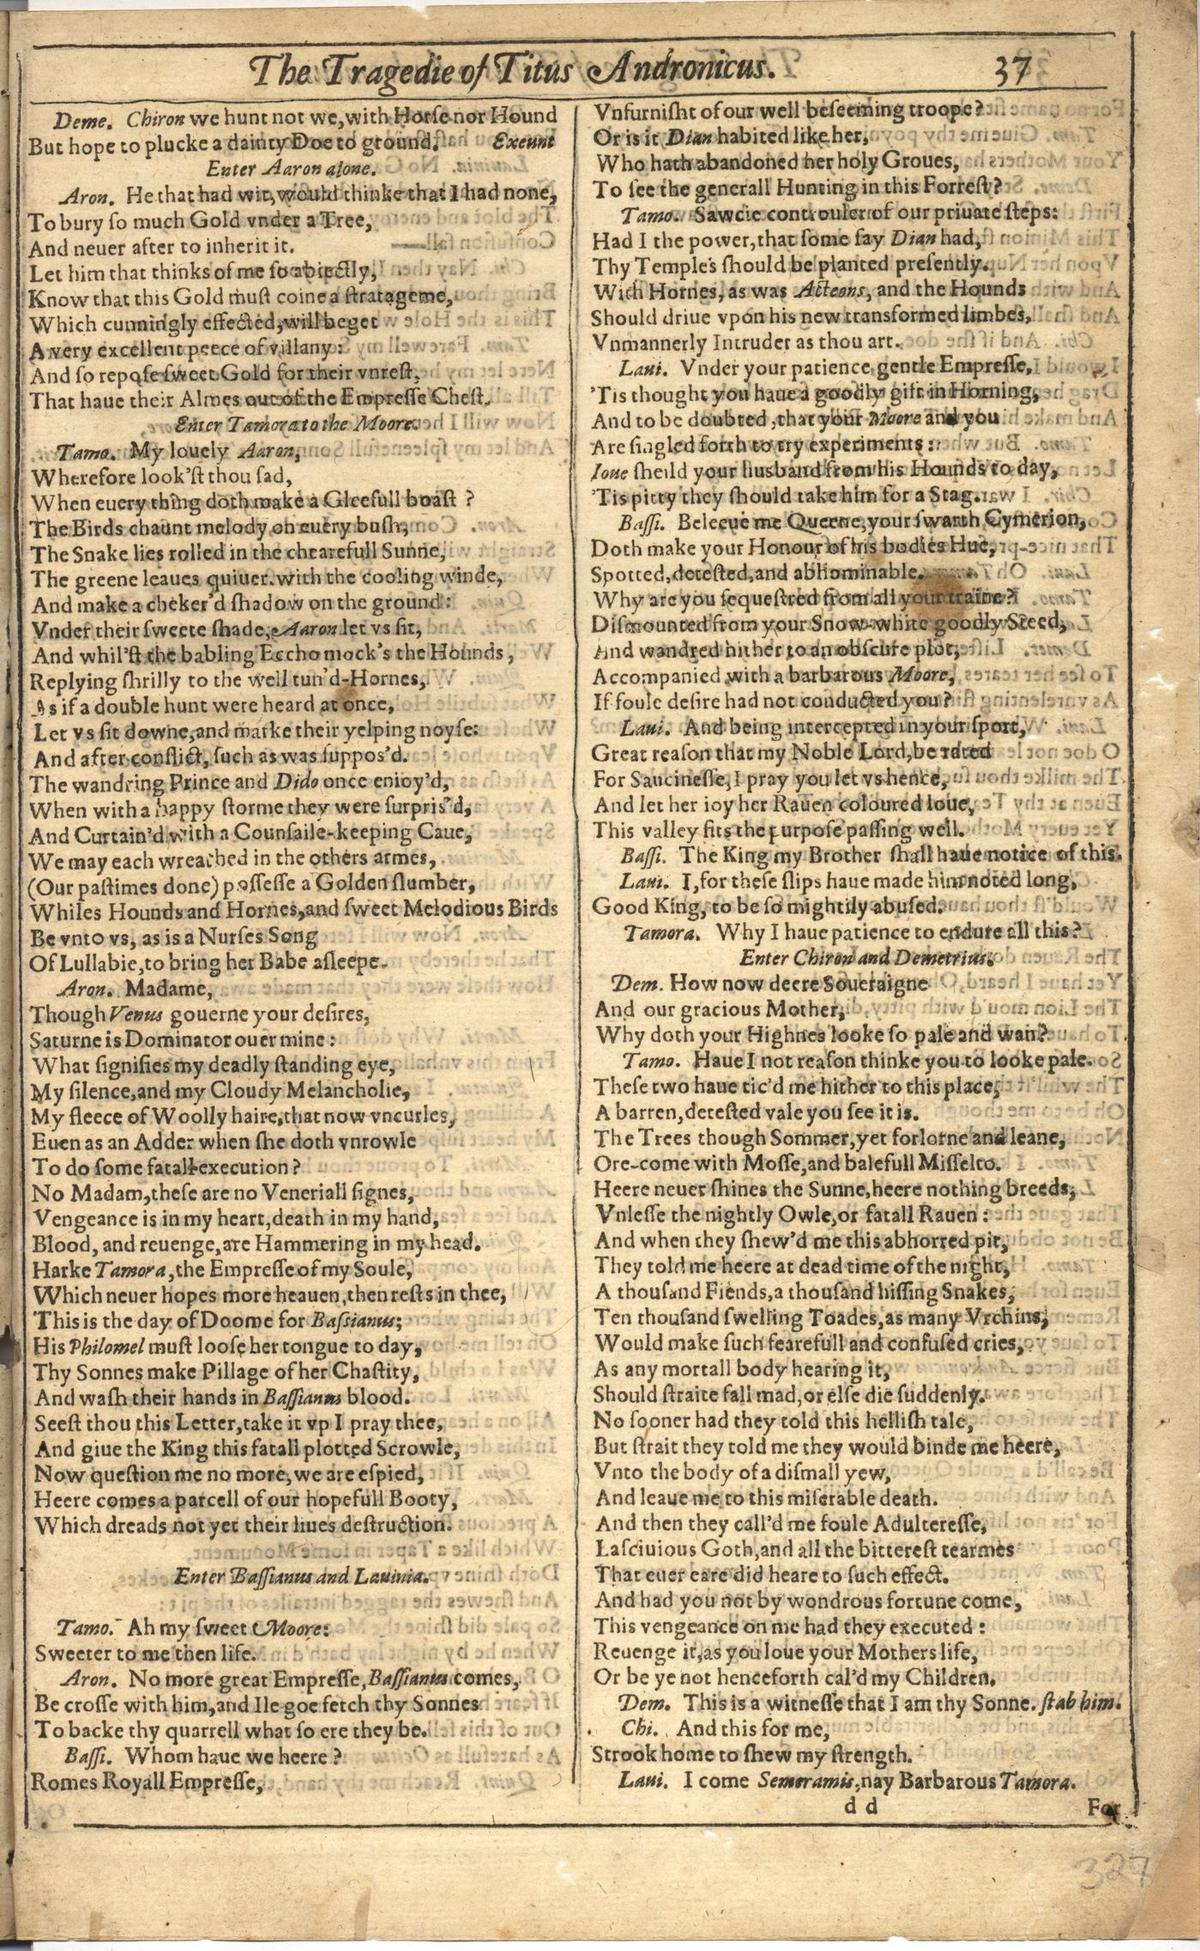 The Tragedie of Titus Andronicus. 37
Deme. Chiron we hunt not we, with Horse nor Hound
But hope to plucke a dainty Doe to ground. Exeunt
Enter Aaron alone.
Aron. He that had wit, would thinke that I had none,
To bury so much Gold vnder a Tree,
And neuer after to inherit it.
Let him that thinks of me so abiectly,
Know that this Gold must coine a stratageme,
Which cunningly effected, will beget
A very excellent peece of villany:
And so repose sweet Gold for their vnrest,
That haue their Almes out of the Empresse Chest.
Enter Tamora to the Moore.
Tamo. My louely Aaron,
Wherefore look'st thou sad,
When euery thing doth make a Gleefull boast?
The Birds chaunt melody on euery bush,
The Snake lies rolled in the chearefull Sunne,
The greene leaues quiuer. with the cooling winde,
And make a cheker'd shadow on the ground:
Vnder their sweete shade, Aaron let vs sit,
And whil'st the babling Eccho mock's the Hounds,
Replying shrilly to the well tun'd-Hornes,
As if a double hunt were heard at once,
Let vs sit downe, and marke their yelping noyse:
And after conflict, such as was suppos'd.
The wandring Prince and Dido once enioy'd,
When with a happy storme they were surpris'd,
And Curtain'd with a Counsaile-keeping Caue,
We may each wreathed in the others armes,
(Our pastimes done) possesse a Golden slumber,
Whiles Hounds and Hornes, and sweet Melodious Birds
Be vnto vs, as is a Nurses Song
Of Lullabie, to bring her Babe asleepe.
Aron. Madame,
Though Venus gouerne your desires,
Saturne is Dominator ouer mine:
What signifies my deadly standing eye,
My silence, and my Cloudy Melancholie,
My fleece of Woolly haire, that now vncurles,
Euen as an Adder when she doth vnrowle
To do some fatall execution?
No Madam, these are no Veneriall signes,
Vengeance is in my heart, death in my hand,
Blood, and reuenge, are Hammering in my head.
Harke Tamora, the Empresse of my Soule,
Which neuer hopes more heauen, then rests in thee,
This is the day of Doome for Bassianus;
His Philomel must loose her tongue to day,
Thy Sonnes make Pillage of her Chastity,
And wash their hands in Bassianus blood.
Seest thou this Letter, take it vp I pray thee,
And giue the King this fatall plotted Scrowle,
Now question me no more, we are espied,
Heere comes a parcell of our hopefull Booty,
Which dreads not yet their liues destruction.
Enter Bassianus and Lauinia.
Tamo. Ah my sweet Moore:
Sweeter to me then life.
Aron. No more great Empresse, Bassianus comes,
Be crosse with him, and Ile goe fetch thy Sonnes
To backe thy quarrell what so ere they be.
Bassi. Whom haue we heere?
Romes Royall Empresse,
Vnfurnisht of our well beseeming troope?
Or is it Dian habited like her,
Who hath abandoned her holy Groues,
To see the generall Hunting in this Forrest?
Tamo. Sawcie controuler of our priuate steps:
Had I the power, that some say Dian had,
Thy Temples should be planted presently.
With Hornes, as was Acteons, and the Hounds
Should driue vpon his new transformed limbes,
Vnmannerly Intruder as thou art.
Laui. Vnder your patience gentle Empresse,
'Tis thought you haue a goodly gift in Horning,
And to be doubted, that your Moore and you
Are singled forth to try experiments:
Ioue sheild your husband from his Hounds to day,
'Tis pitty they should take him for a Stag.
Bassi. Beleeue me Queene, your swarth Cymerion,
Doth make your Honour of his bodies Hue,
Spotted, detested, and abhominable.
Why are you sequestred from all your traine?
Dismounted from your Snow-white goodly Steed,
And wandred hither to an obscure plot,
Accompanied with a barbarous Moore,
If foule desire had not conducted you?
Laui. And being intercepted in your sport,
Great reason that my Noble Lord, be rated
For Saucinesse, I pray you let vs hence,
And let her ioy her Rauen coloured loue,
This valley fits the purpose passing well.
Bassi. The King my Brother shall haue notice of this.
Laui. I, for these slips haue made him noted long,
Good King, to be so mightily abused.
Tamora. Why I haue patience to endure all this?
Enter Chiron and Demetrius.
Dem. How now deere Soueraigne
And our gracious Mother,
Why doth your Highnes looke so pale and wan?
Tamo. Haue I not reason thinke you to looke pale.
These two haue tic'd me hither to this place,
A barren, detested vale you see it is.
The Trees though Sommer, yet forlorne and leane,
Ore-come with Mosse, and balefull Misselto.
Heere neuer shines the Sunne, heere nothing breeds,
Vnlesse the nightly Owle, or fatall Rauen:
And when they shew'd me this abhorred pit,
They told me heere at dead time of the night,
A thousand Fiends, a thousand hissing Snakes,
Ten thousand swelling Toades, as many Vrchins,
Would make such fearefull and confused cries,
As any mortall body hearing it,
Should straite fall mad, or else die suddenly.
No sooner had they told this hellish tale,
But strait they told me they would binde me heere,
Vnto the body of a dismall yew,
And leaue me to this miserable death.
And then they call'd me foule Adulteresse,
Lasciuious Goth, and all the bitterest tearmes
That euer eare did heare to such effect.
And had you not by wondrous fortune come,
This vengeance on me had they executed:
Reuenge it, as you loue your Mothers life,
Or be ye not henceforth cal'd my Children.
Dem. This is a witnesse that I am thy Sonne. stab him.
Chi. And this for me,
Strook home to shew my strength.
Laui. I come Semeramis, nay Barbarous Tamora.
d d For
327